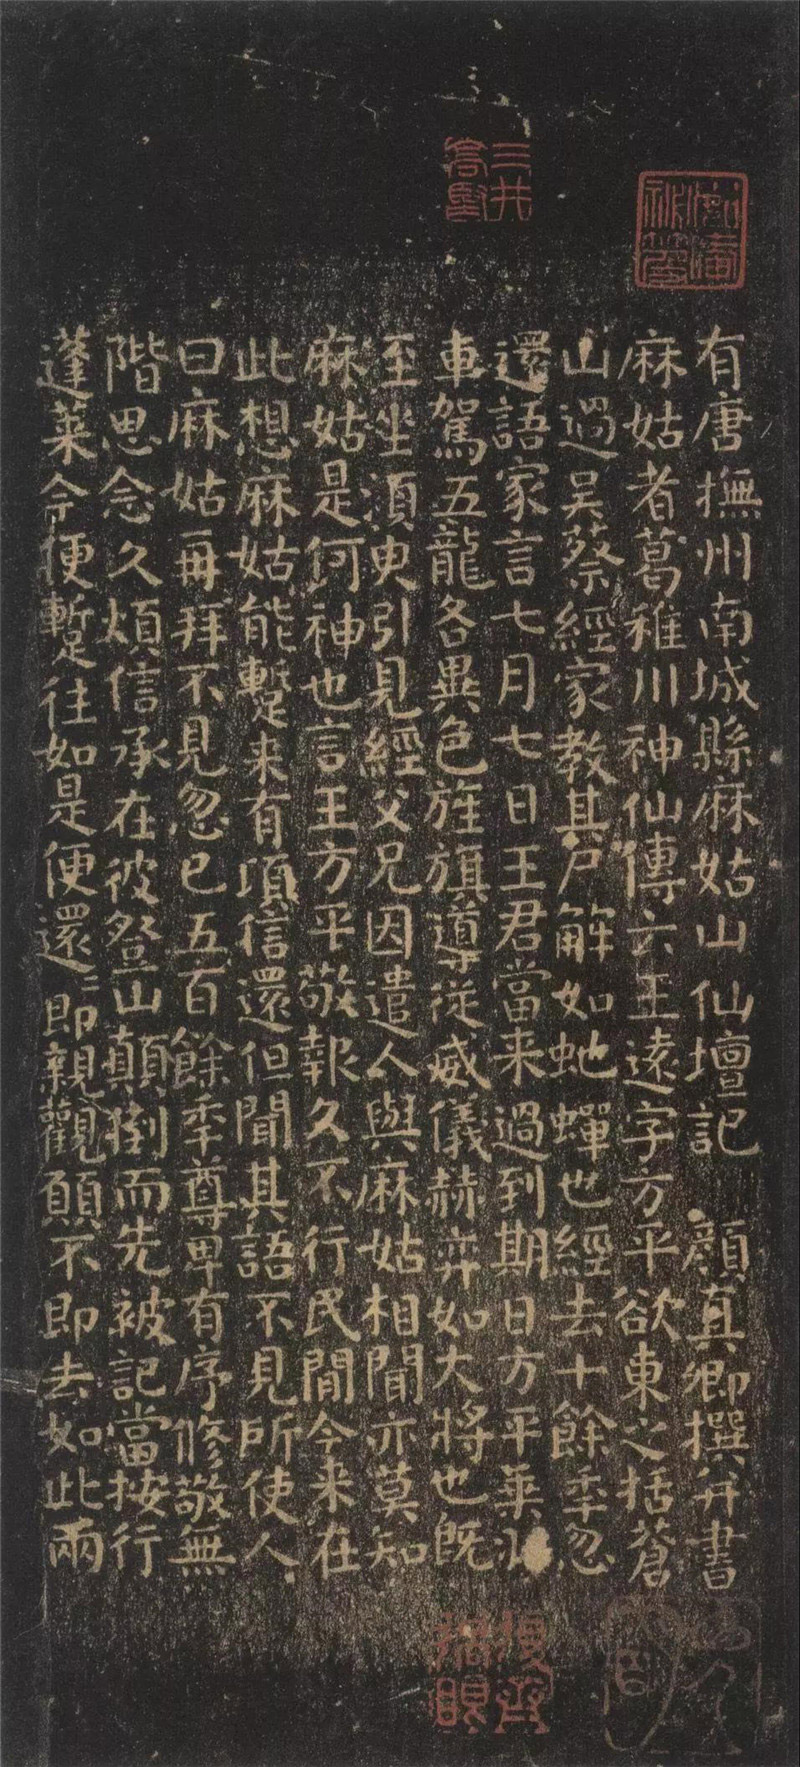 有唐撫州南城縣麻姑山仙壇記 顏真卿撰并書
麻姑者葛稚川神仙傳云王遠字方平欲東之括蒼
山過吳蔡經家教其尸解如虵蟬也經去十餘年忽
還語家言七月七日王君當来過到期日方平乗
車駕五龍各異色旌旗導從威儀赫弈如大將也既
至坐須臾引見經父兄因遣人與麻姑相聞亦莫知
麻姑是何神也言王方平敬報久不行民間今来在
此想麻姑能蹔来有頃信還但聞其語不見所使人
曰麻姑再拜不見忽已五百餘年尊卑有序修敬無
階思念久煩信承在彼登山顛倒而先被記當按行
蓬萊今便蹔往如是便還還即親觀願不即去如此兩
三井
高堅